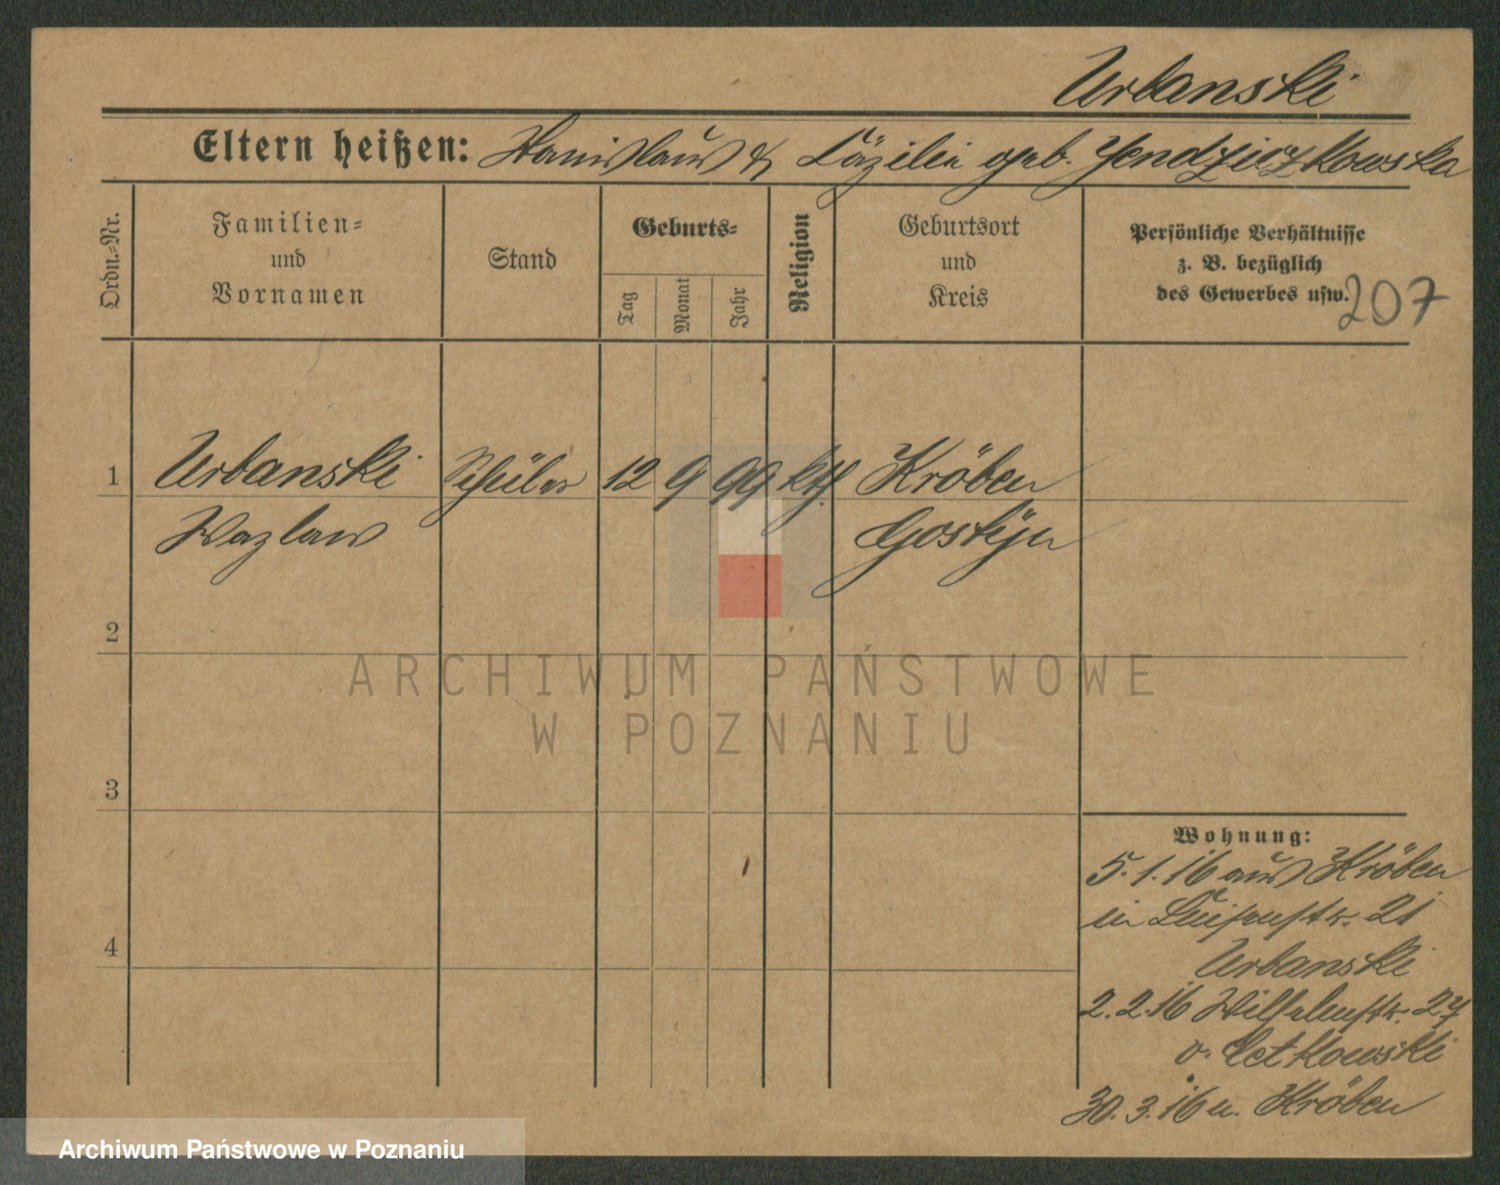 Urbanski
Eltern heißen: Stanislaus & Cäzilie geb. Jendziczkowska
Ordn.-Nr.
Familien=
und
Vornamen
Stand
Geburts=
Tag
Monat
Jahr
Religion
Geburtsort
und
Kreis
Persönliche Verhältnisse
z. B. bezüglich
des Gewerbes usw.
207
1 Urbanski Schüler 12 9 99 kth. Kröben
Wazlaw Gostyn
2
ARCHIWUM PAŃSTWOWE
W POZNANIU
3
Wohnung:
5.1.16 aus Kröben
in Luisenstr. 21
Urbanski
4
2.2.16 Wilhelmstr. 27
v. Letkowski
30.3.16 n. Kröben
Archiwum Państwowe w Poznaniu